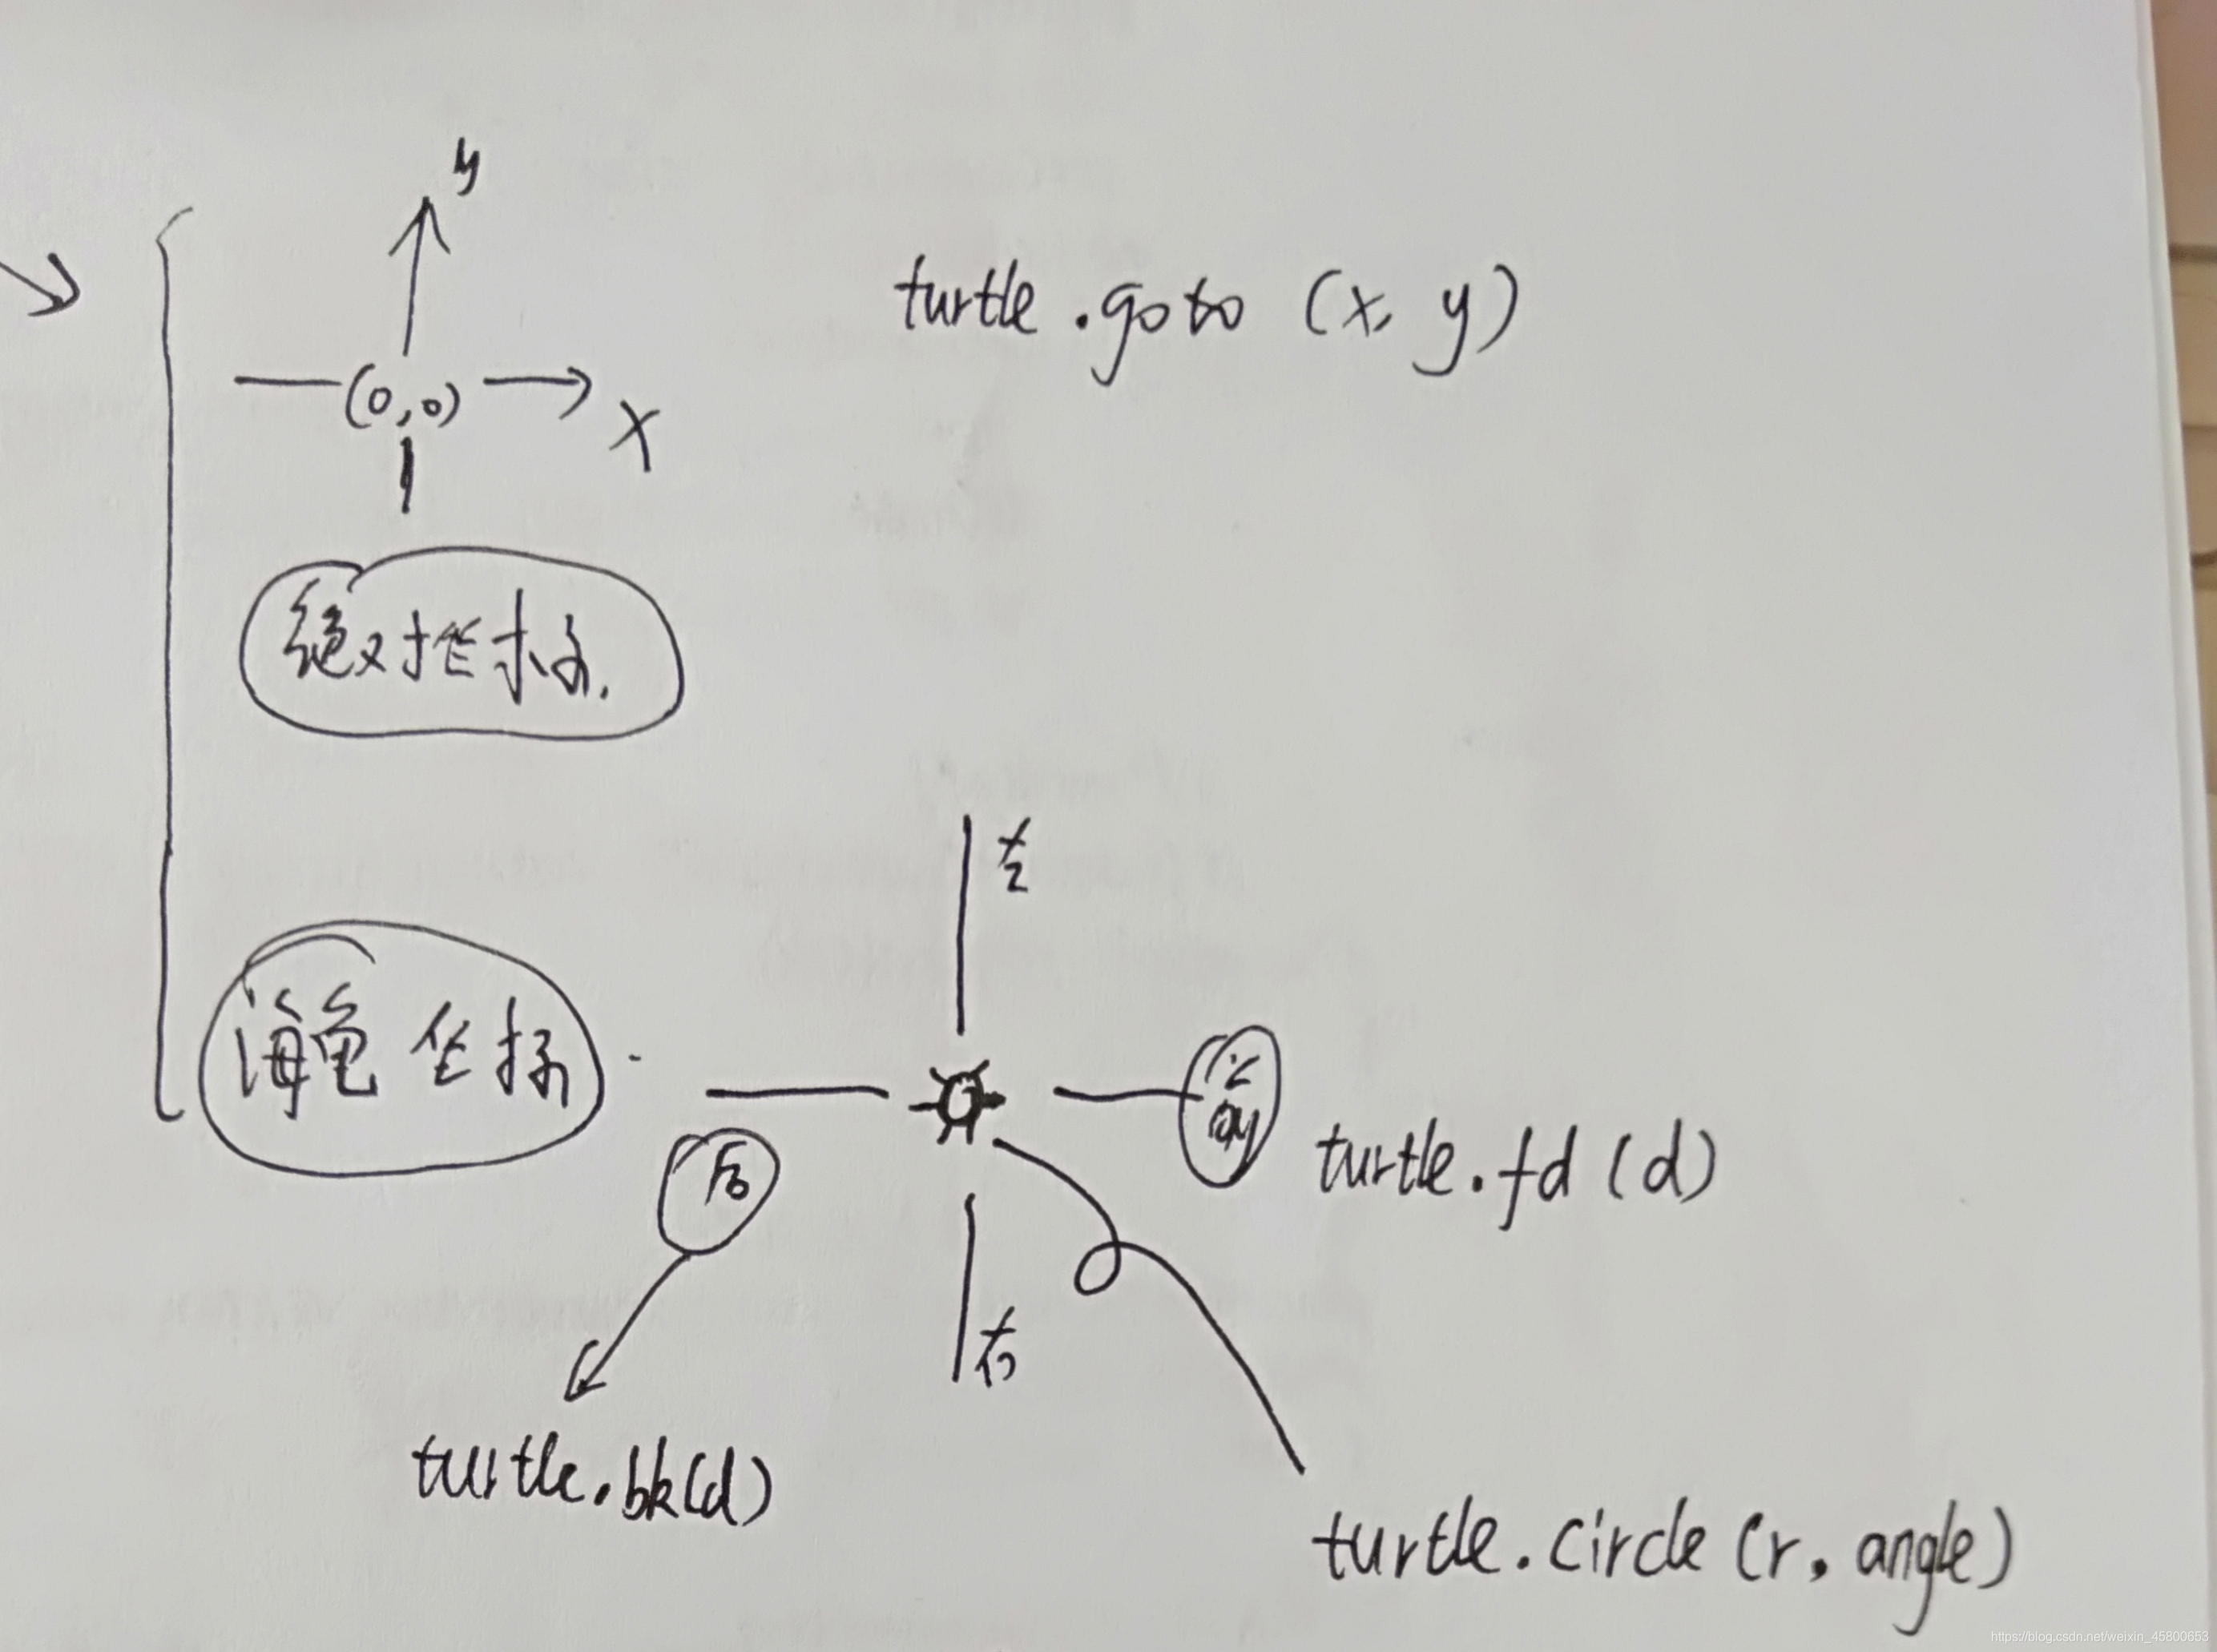 y
turtle.goto (x, y)
(0,0)
x
绝对坐标.
左
海龟坐标
前
后
turtle.fd (d)
右
turtle.bk(d)
turtle.circle (r, angle)
https://blog.csdn.net/weixin_45800653